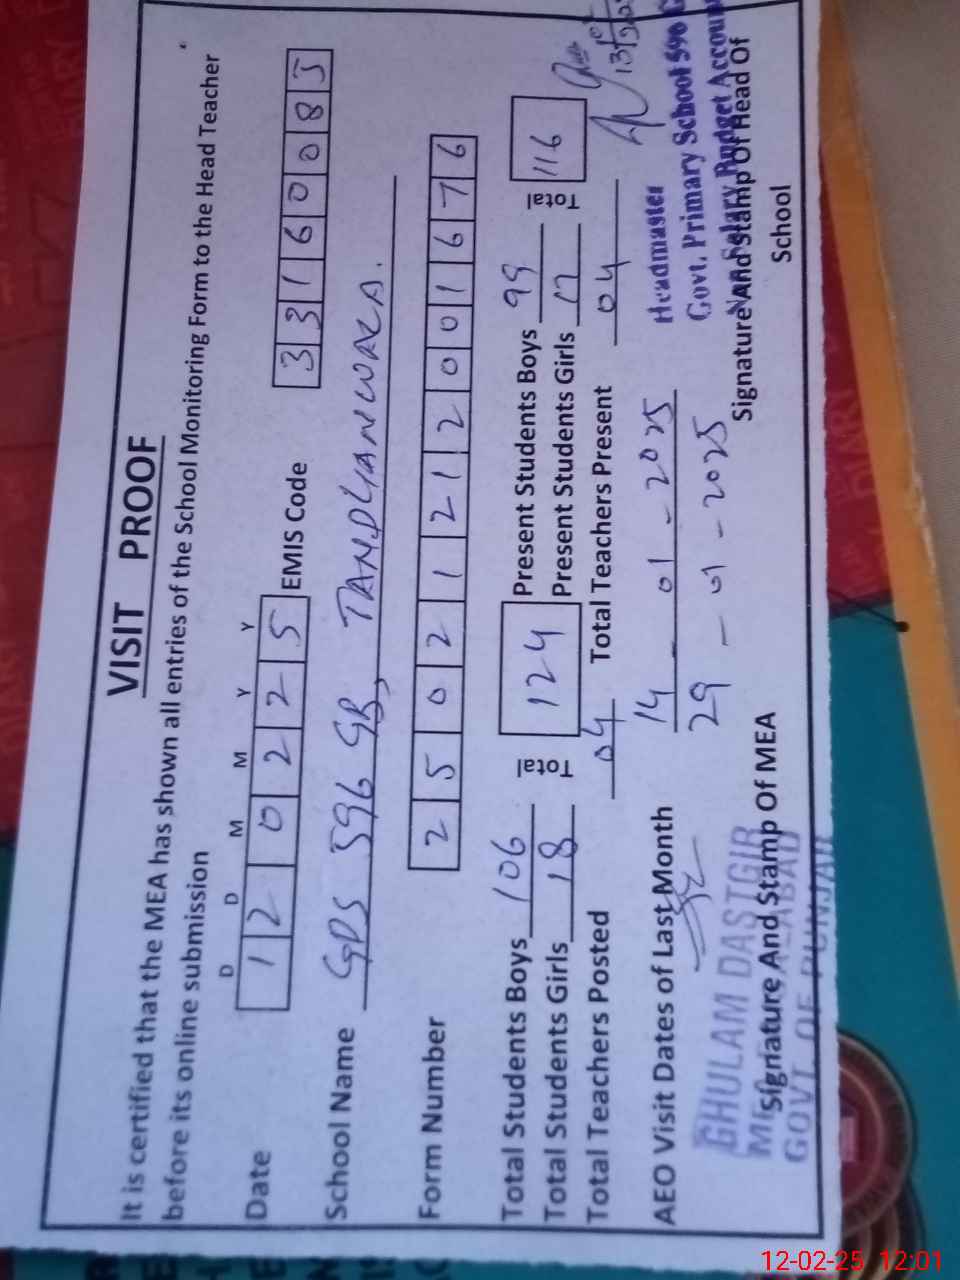 VISIT PROOF
It is certified that the MEA has shown all entries of the School Monitoring Form to the Head Teacher
before its online submission
D D M M Y Y
Date 1 2 0 2 2 5 EMIS Code 3 3 1 6 0 0 8 5
School Name GPS 596 GB, TANDLIANWALA.
Form Number 2 5 0 2 1 2 1 2 0 0 1 6 7 6
Total Students Boys 106 Total 124 Present Students Boys 99 Total 116
Total Students Girls 18 Present Students Girls 17
Total Teachers Posted 04 Total Teachers Present 04
AEO Visit Dates of Last Month 14 - 01 - 2025
29 - 01 - 2025
Headmaster
Govt. Primary School 596 G
Non Salary Budget Accoun
GHULAM DASTGIR
Signature And Stamp Of MEA
GOVT OF PUNJAB
Signature And Stamp Of Head Of
School
12-02-25 12:01